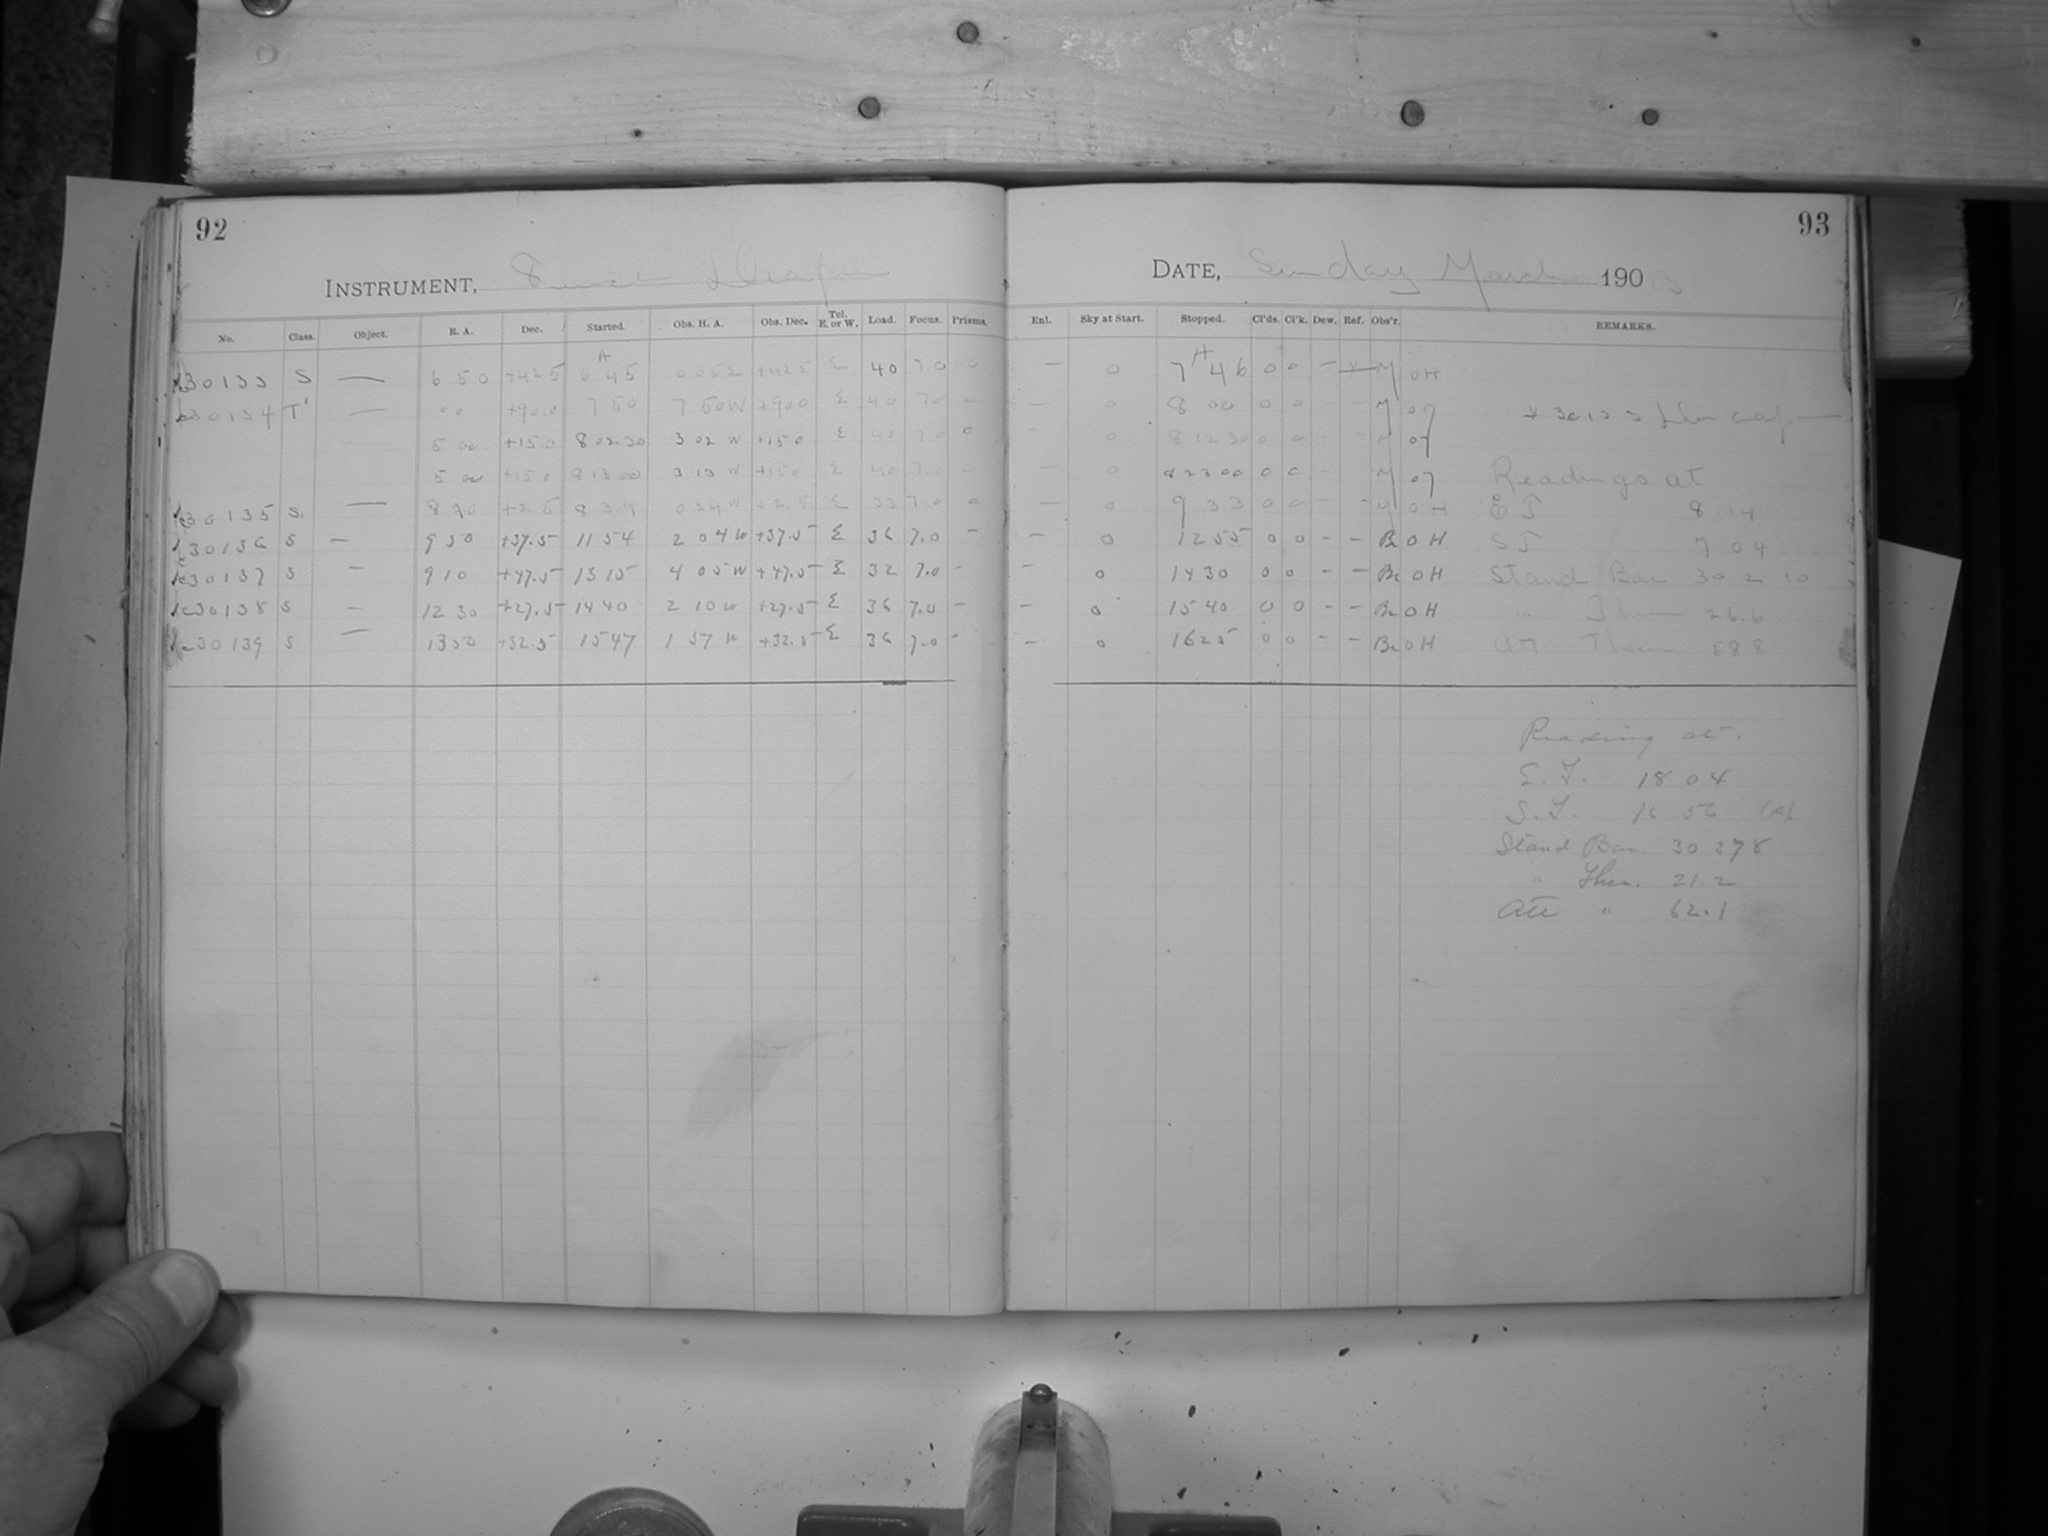 92
INSTRUMENT, 8 inch Draper
No. Class. Object. R. A. Dec. Started. Obs. H. A. Obs. Dec. Tel. E. or W. Load. Focus. Prisms.
30133 S — 6 50 +42.5 6 45 0 05 E +42.5 E 40 7.0 0
30134 T' — 00 +90.0 7 50 7 50 W +90.0 E 40 7.0
5 00 +15.0 8 02 30 3 02 W +15.0 E 40 7.0 0
5 00 +15.0 8 13 00 3 13 W +15.0 E 40 7.0 -
30135 S. — +2.5 8 0 24 W +2.5 E 33 7.0 0
30136 S — 9 50 +37.5 11 54 2 04 W +37.5 E 36 7.0 -
30137 S — 9 10 +47.5 13 15 4 05 W +47.5 E 32 7.0 -
30138 S — 12 30 +27.5 14 40 2 10 W +27.5 E 36 7.0 -
30139 S — 13 50 +32.5 15 47 1 57 W +32.5 E 36 7.0 -
93
DATE, Sunday March 1903
Enl. Sky at Start. Stopped. Cl'ds. Cl'k. Dew. Ref. Obs'r. REMARKS.
— 0 7 46 0 0 - M OH
— 0 8 00 0 0 - - M
— 0 8 12 30 0 0 - - M
— 0 8 23 00 0 0 - M Readings at
— 0 9 33 0 0 - - M OH E T 8 14
— 0 12 55 0 0 - - Br OH S T 7 04
— 0 14 30 0 0 - - Br OH Stand Bar 30 210
— 0 15 40 0 0 - - Br OH " Ther 26.6
— 0 16 25 0 0 - - Br OH Att Ther 58 8
Reading at.
E. T. 18 04
S. T. 16 56 (A)
Stand Bar. 30 378
" Ther. 21.2
Att " 62.1